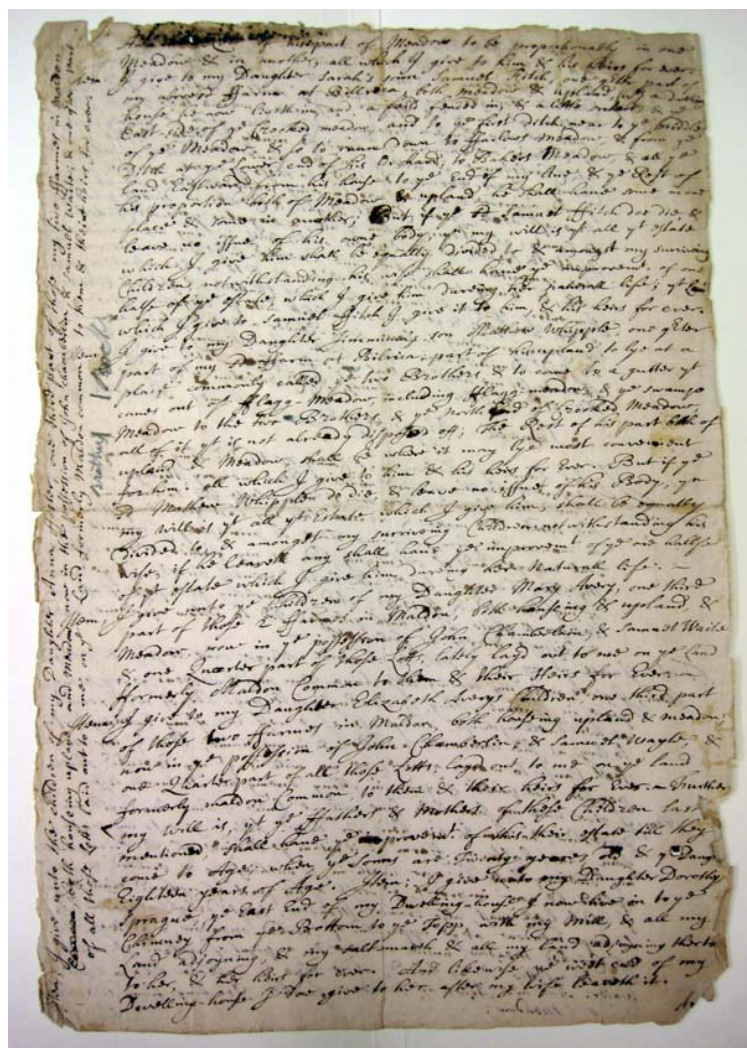 of his part of Meadow to be proportionally in one
Meadow & in another, all which I give to him & his heirs for ever.
Item I give to my Daughter Sarah's son Samuel Fitch, one part of
my farme at Billrica, both meadow & upland,
house he now liveth in, and a feild fenced in, & a little &
East-side of ye Crooked meadow, and to ye first ditch near to ye
of ye Meadow, & so to runn down to Meadow & from ye
Ditch at ye Lower end of his Orchard, to Bakers Meadow, & all ye
land Eastward from his house to ye End of my line & ye Rest of
his proportion both of Meadow & upland, he shall have some in one
place & some in another; But if ye sd Samuel ffitch doe die, &
leave no issue of his owne body, yn my will is yt all yt estate
which I give him shall be equally divided to & amongst my surviving
Children, notwithstanding his wife shall have ye improvemt. of one
halfe of ye estate, which I give him dureing her naturall life; yt
which I give to Samuel ffitch I give it to him, & his heirs for ever
Item I give to my Daughter son Mathew Whipple, one
part of my farme at Bilrica, part of his upland to lye at a
place commonly called ye two Brothers & to come to a gutter yt
comes out of fflagg-Meadow, including fflagg-meadow, & ye swamp
Meadow to the two Brothers, & ye north End of Crooked Meadow,
all of it yt is not already disposed off; The Rest of his part both of
upland & Meadow, shall be where it may lye most convenient
for him. all which I give to him & his heirs for Ever. But if ye
sd Mathew Whipple do die, & leave no issue of his Body, yn
my will is yt all yt Estate which I give him, shall be equally
Divided to & amongst my surviving Children, notwithstanding his
wife, if he leaveth any shall have ye improvemt of ye one halfe
of yt estate which I give him, dureing her Naturall life. -
Item, I give unto ye Children of my Daughter Mary Avery, one third
part of those 2 ffarmes in Maldon, both houseing & upland, &
Meadow, now in ye possession of John Chamberline, & Samuel Waite
& one Quarter part of those Lotts lately layd out to me on ye land
fformerly Maldon Common to them & their Heirs for Ever.
Item I give to my Daughter Elizabeth Averys Children one third part
of those two ffarmes in Maldon, both houseing upland & meadow,
now in ye possession of John Chamberlin, & Samuel Wayte, &
one Quarter part of all those Lotts layd out to me on ye land
formerly maldon Common to them & their heirs for Ever. ffurther
my will is, yt ye ffathers & Mothers of these Children last
mentioned, shall have ye improvemt. of this their estate till they
come to Age, when ye Sonns are Twenty years old & ye
Eighteen years of Age. Item, I give unto my Daughter Dorothy
Sprague, ye East End of my Dwelling-house I now live in to ye
Chimney from ye Bottom to ye Topp, with my Mill, & all my
Land adjoyning, & my salt marsh & all my land adjoyning thereto
to her, & her heirs for ever. And likewise ye west end of my
Dwelling-house I doe give to her after my wife leaveth it.
Item I give unto the children of my Daughter Anna one third part of those my two ffarmes in maldon
both houseing upland and Meadow now in the possession of John Chamberlin & Samuel Waite, & one Quarter part
of all those Lotts laid out to me on ye Land formerly Maldon common to them & their heirs for ever.